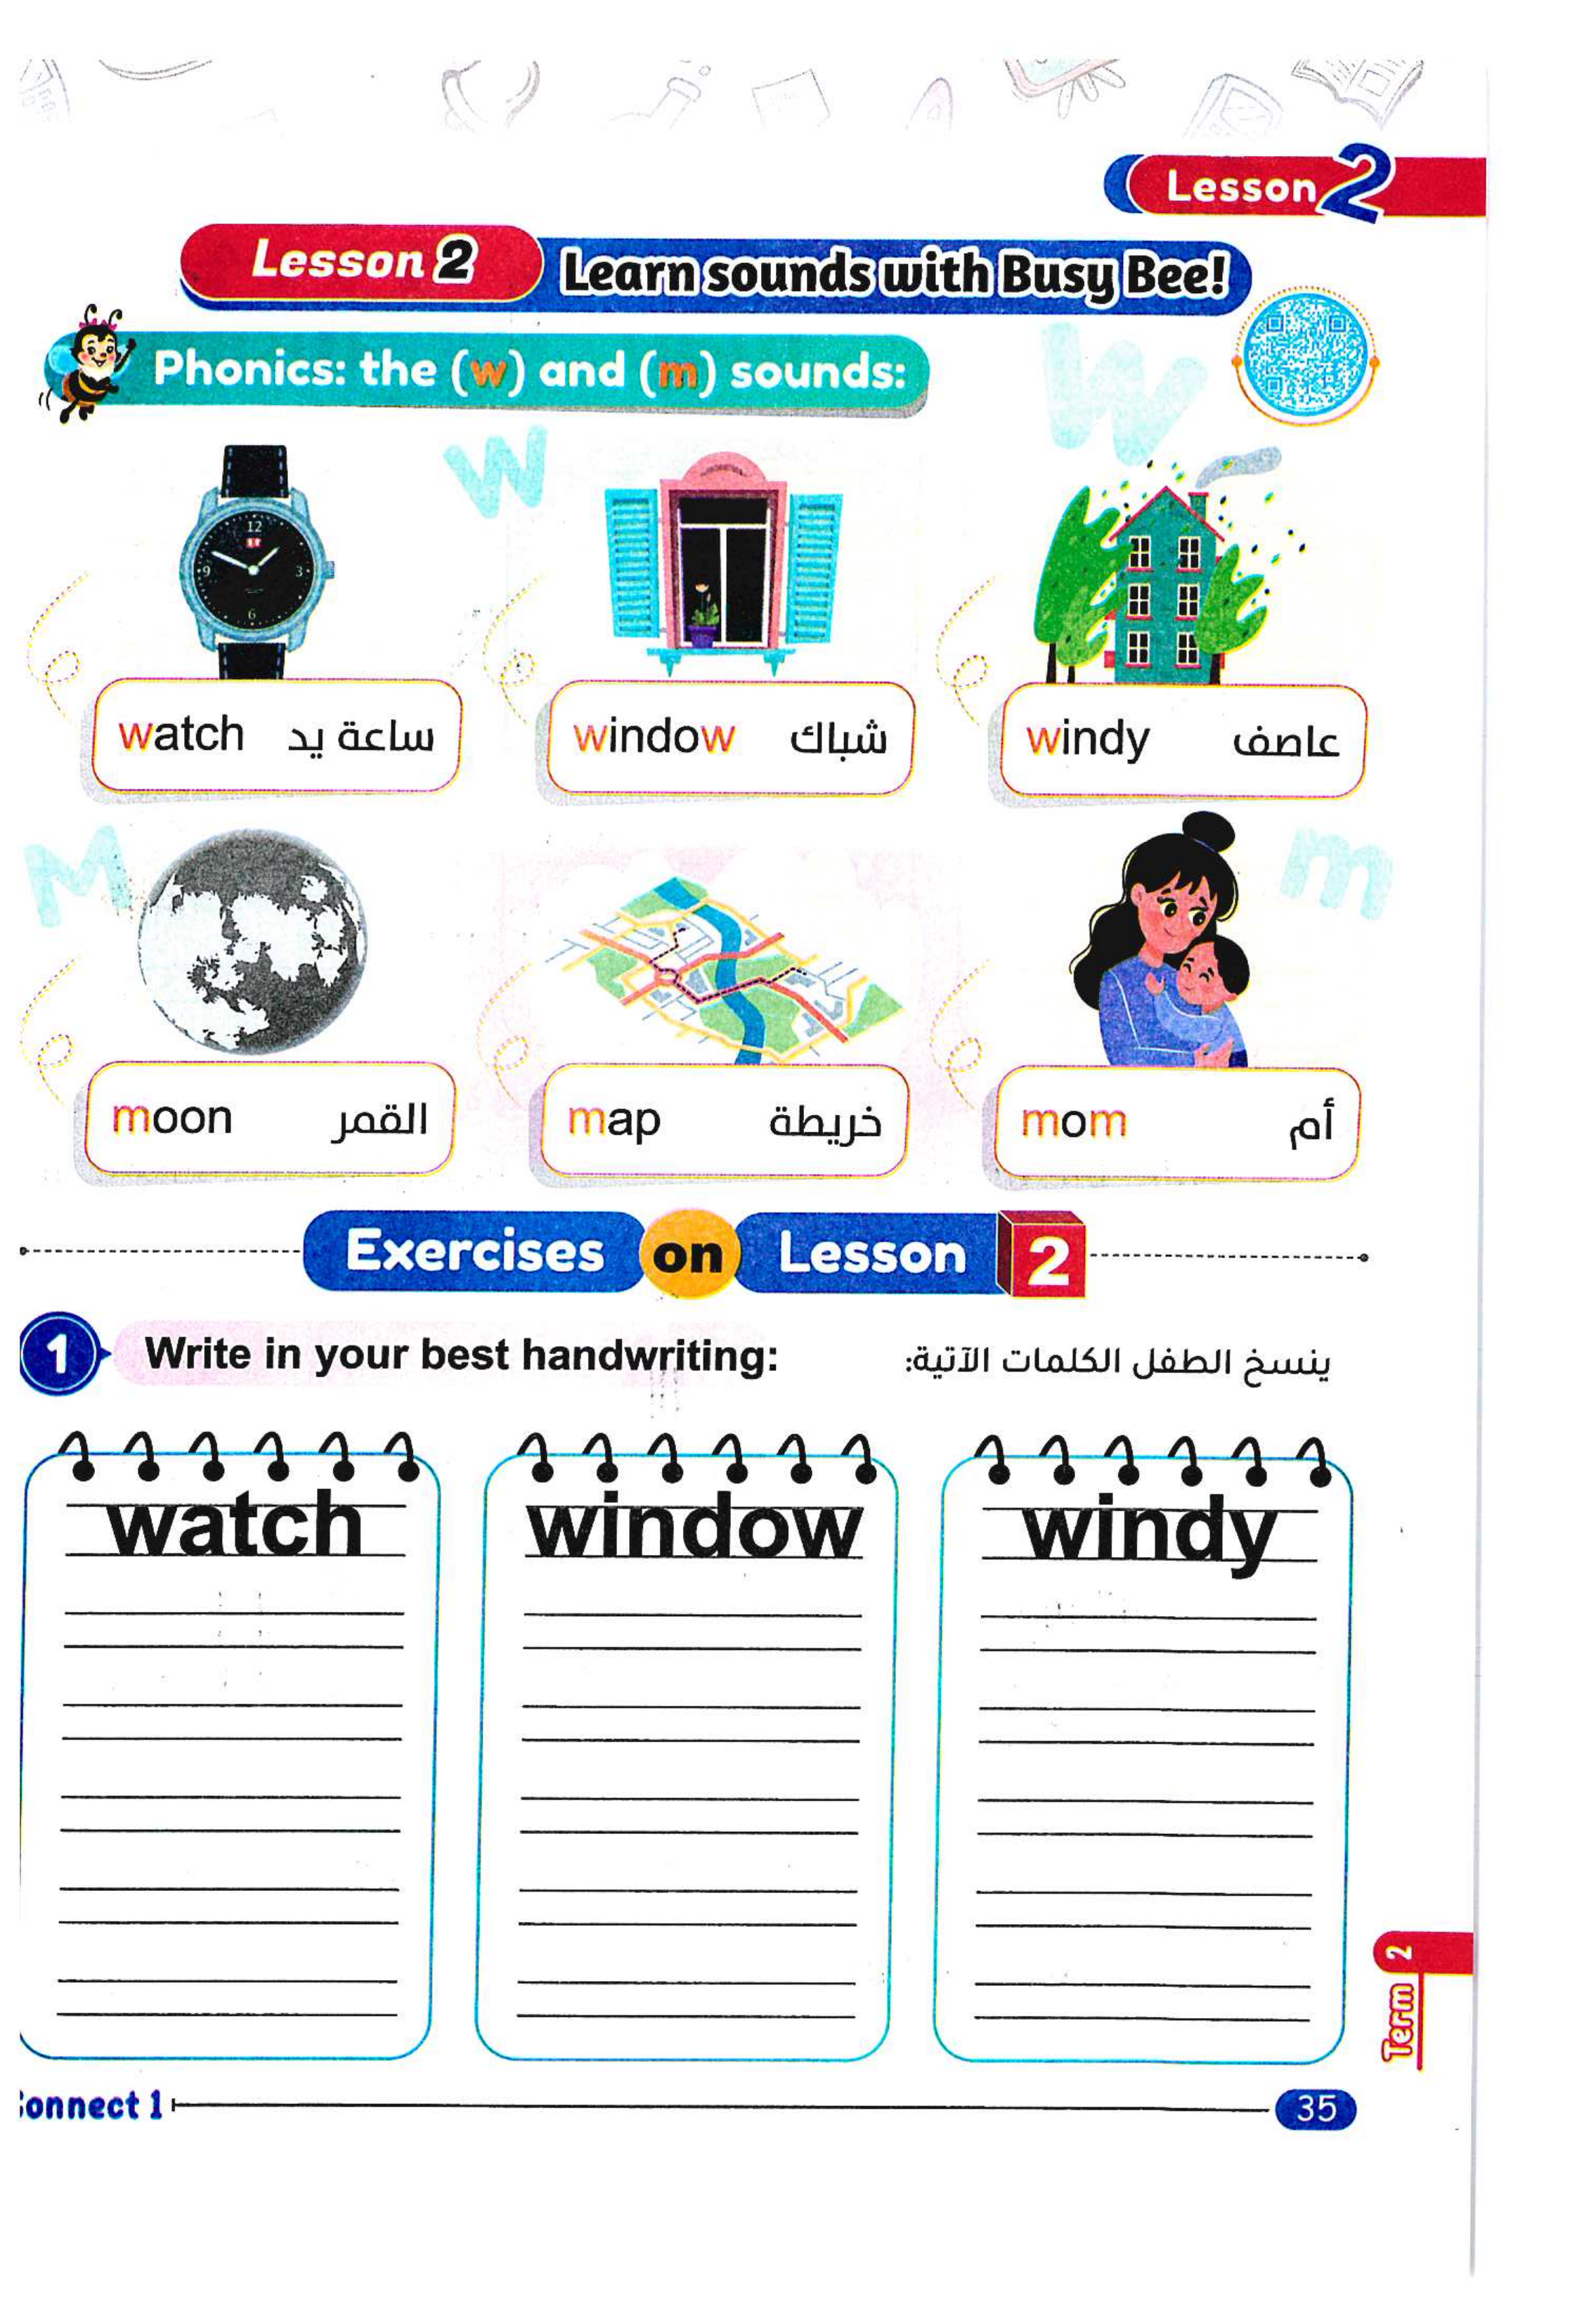 Lesson 2
Lesson 2 Learn sounds with Busy Bee!
Phonics: the (w) and (m) sounds:
W
w
12
3
6
9
watch ساعة يد
window شباك
windy عاصف
M
m
moon القمر
map خريطة
mom أم
Exercises on Lesson 2
1 Write in your best handwriting: ينسخ الطفل الكلمات الآتية:
watch
window
windy
Term 2
onnect 1
35